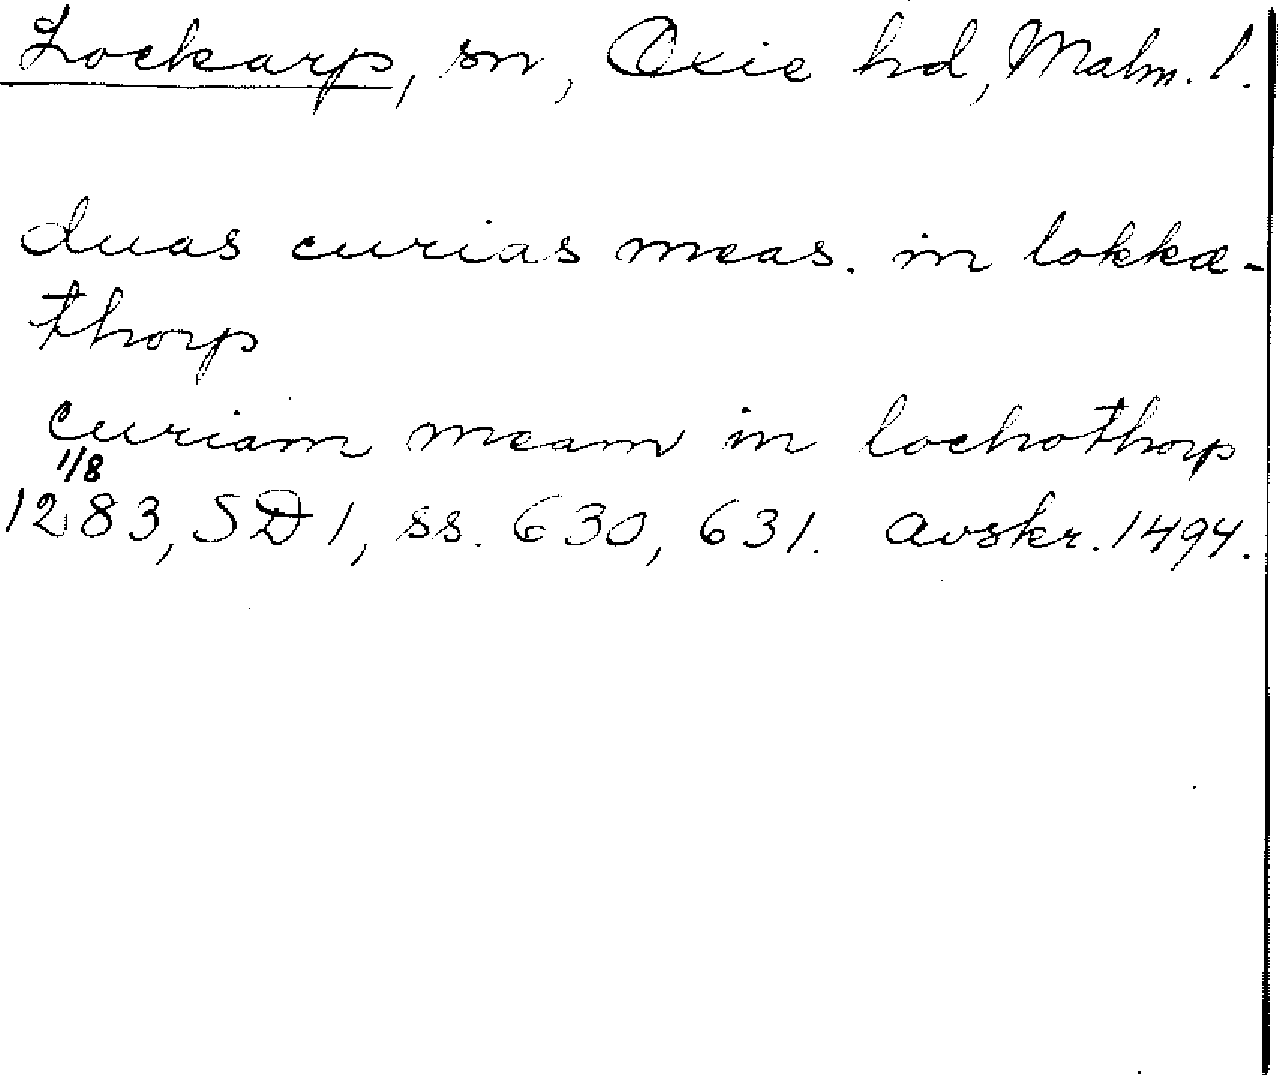 Lockarp, sn, Oxie hd, Malm. l.
duas curias meas. in lokkæ-
thorp
curiam meam in lochothorp
1/8
1283, SD 1, ss. 630, 631. Avskr. 1494.